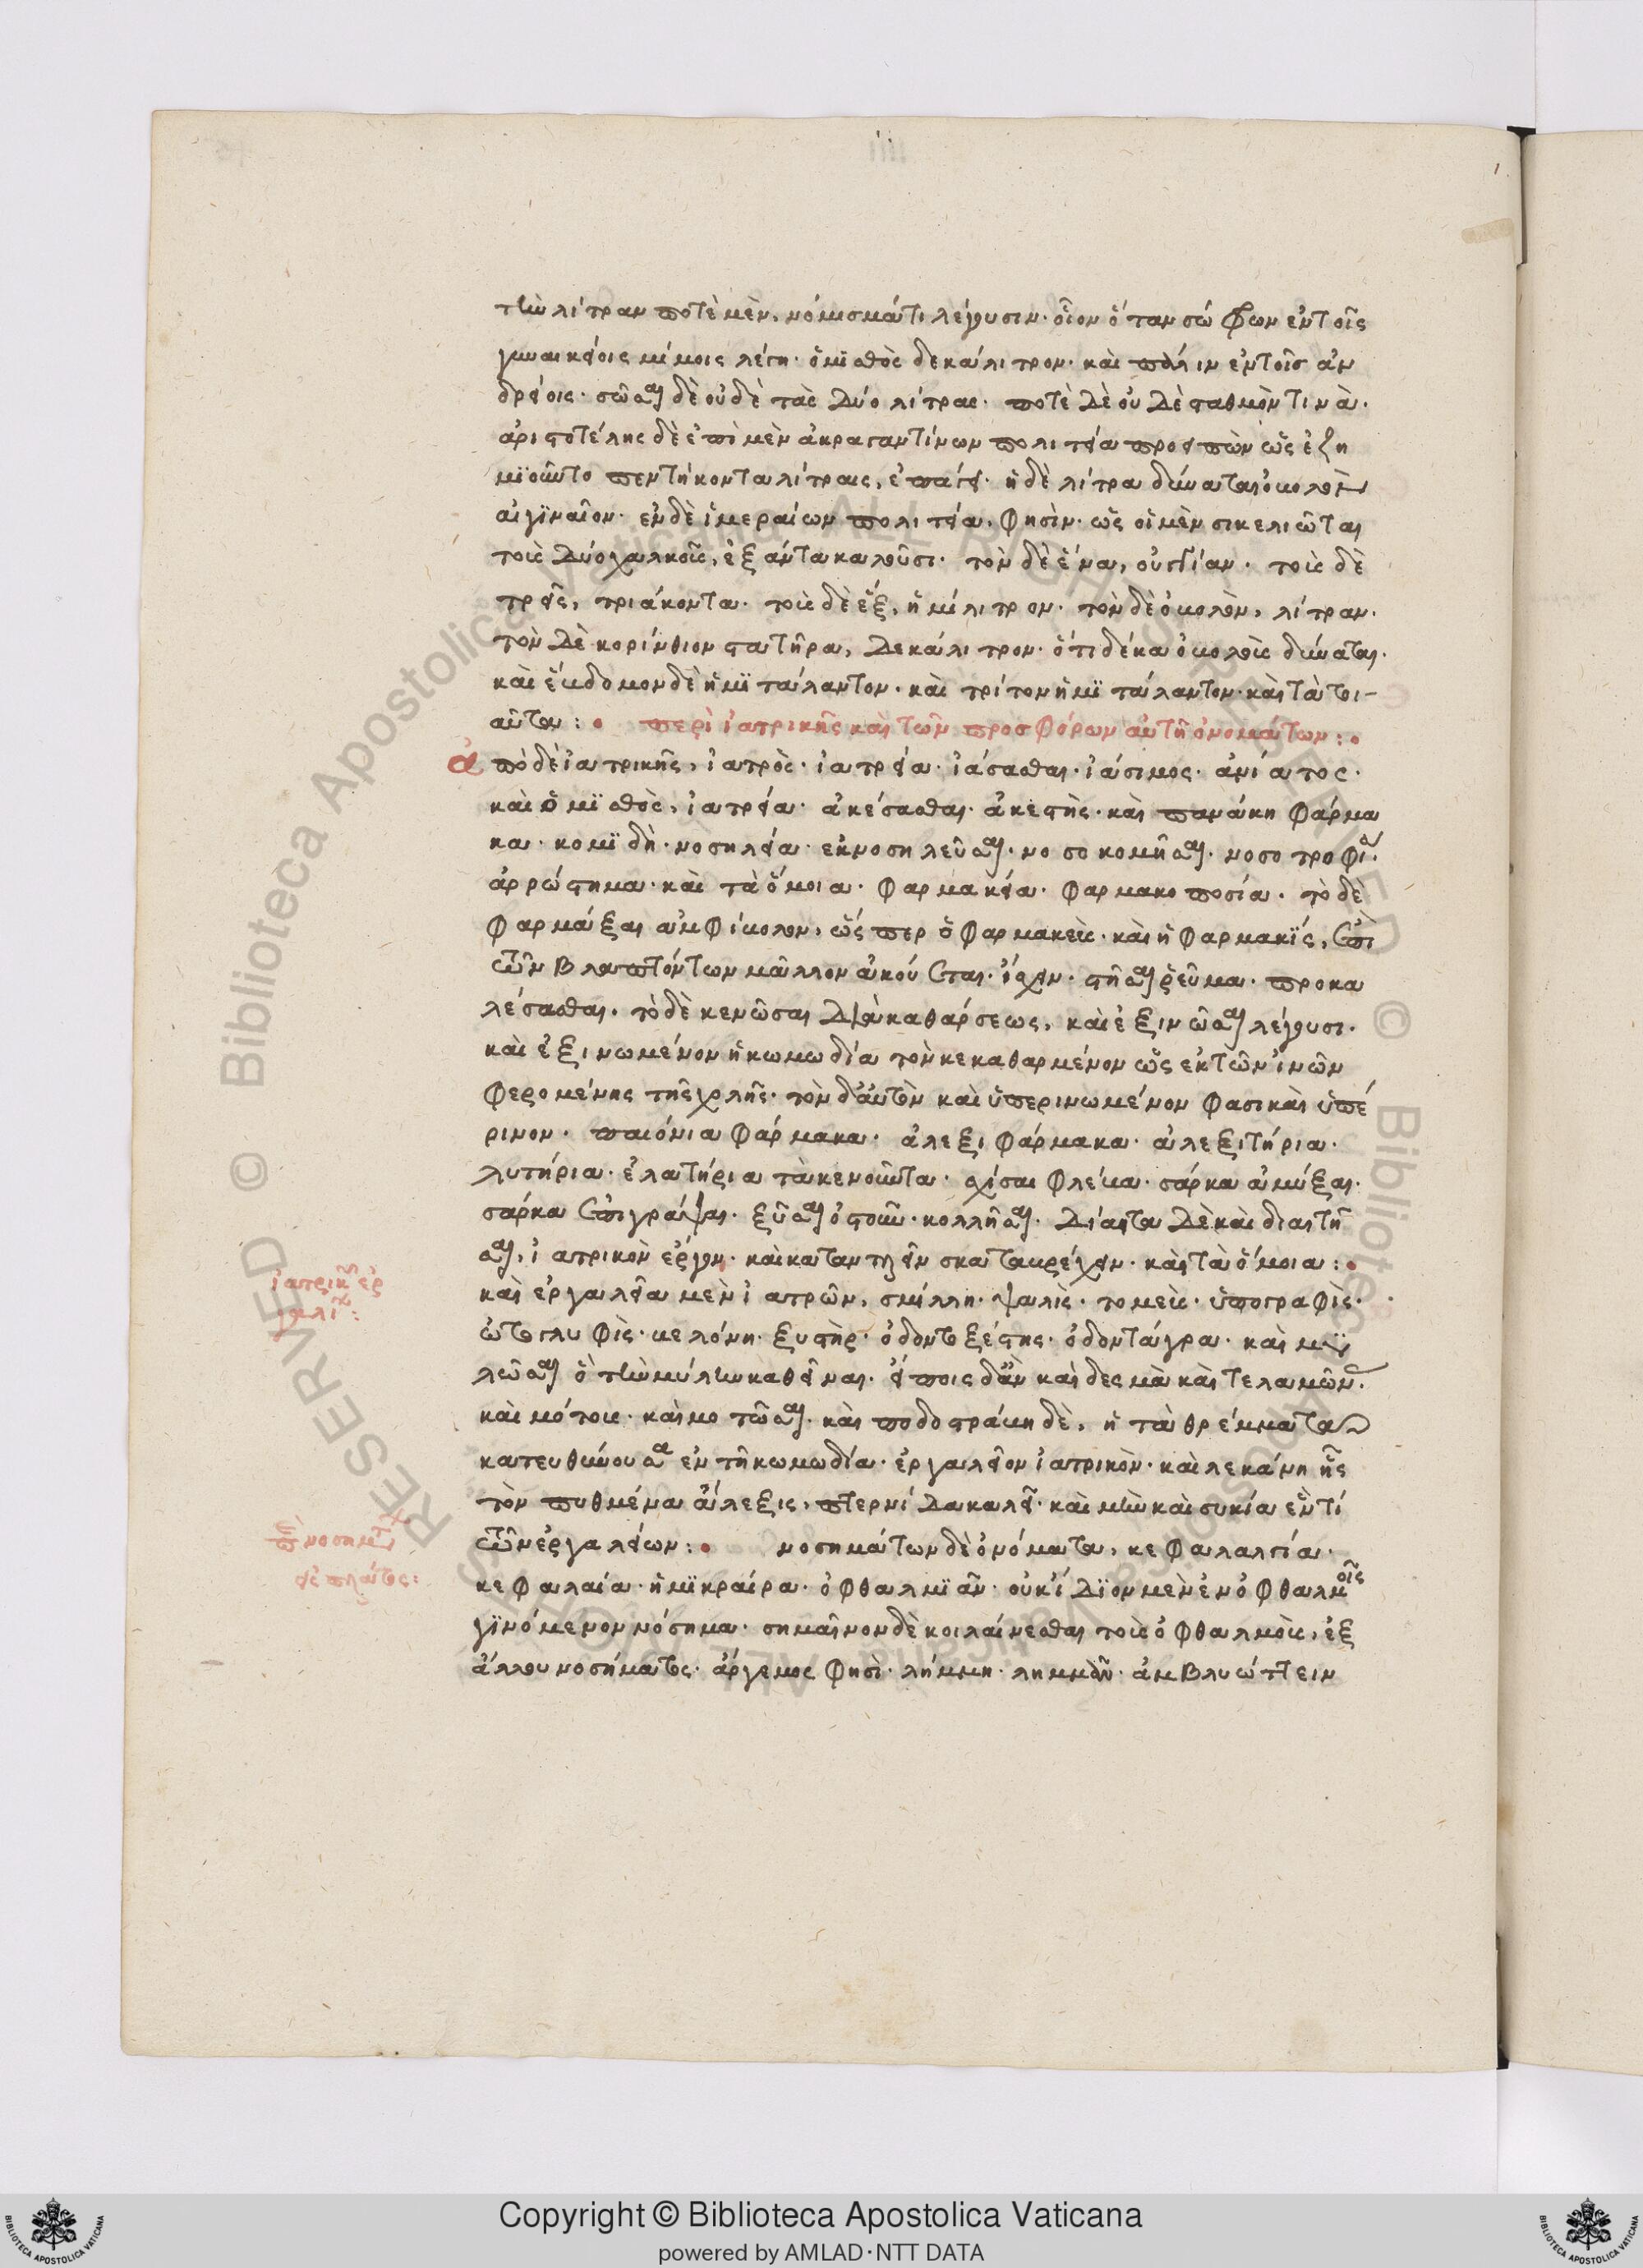 τὴν λίτραν ποτὲ μὲν, νόμισμά τι λέγουσιν· οἷον ὅταν σώφρων ἐν τοῖς
γυναικείοις μίμοις λέγη· ὁ μϊσθὸς δεκάλιτρον· καὶ πάλιν ἐν τοῖς ἀν
δρείοις· σῶσαι δὲ οὐδὲ τὰς δύο λίτρας· ποτὲ δὲ οὐδὲ σταθμόν τινὰ·
ἀριστοτέλης δὲ ἐπὶ μὲν ἀκραγαντίνων πολιτεία προειπὼν ὡς ἐζη
μϊοῦντο πεντήκοντα λίτρας, ἐπάγει· ἡ δὲ λίτρα δύναται ὀβολὸν
αἰγϊναῖον· ἐν δὲ ἱμεραίων πολιτεία, φησὶν· ὡς οἱ μὲν σικελιῶται
τοὺς δύο χαλκοῦς, ἑξάντα καλοῦσι· τὸν δὲ ἕνα, οὐγγίαν· τοὺς δὲ
τρεῖς, τριάκοντα· τοὺς δὲ ἓξ, ἡμίλιτρον· τὸν δὲ ὀβολὸν, λίτραν·
τὸν δὲ κορίνθιον στατῆρα, δεκάλιτρον· ὅτι δέκα ὀβολοὺς δύναται·
καὶ ἕβδομον δὲ ἡμϊτάλαντον· καὶ τρίτον ἡμϊτάλαντον· καὶ τὰ τοι-
αῦτα: περὶ ἰατρικῆς καὶ τῶν προσφόρων αὐτῆ ὀνομάτων:
ἀπὸ δὲ ἰατρικῆς, ἰατρὸς· ἰατρεία· ἰάσασθαι· ἰάσιμος· ἀνίατος·
καὶ ὁ μϊσθὸς, ἰατρεία· ἀκέσασθαι· ἀκεστὴς· καὶ πανάκη φάρμα
κα· κομϊδὴ· νοσηλεία· ἐκνοσηλεῦσαι· νοσοκομῆσαι· νοσοτροφία·
ἀρρώστημα· καὶ τὰ ὅμοια· φαρμακεία· φαρμακοποσία· τὸ δὲ
φαρμάξαι ἀμφίβολον, ὥσπερ ὁ φαρμακεὺς· καὶ ἡ φαρμακϊς, ἐπὶ
τῶν βλαπτόντων μᾶλλον ἀκούεται· ἴσχειν· στῆσαι ῥεῦμα· προκα
λέσασθαι· τὸ δὲ κενῶσαι διὰ καθάρσεως, καὶ ἐξινῶσαι λέγουσι·
καὶ ἐξινωμένον ἡ κωμωδία τὸν κεκαθαρμένον ὡς ἐκ τῶν ἰνῶν
φερομένης τῆς χολῆς· τὸν δ' αὐτὸν καὶ ὑπερινωμένον φασι καὶ ὑπέ
ρινον· παιόνια φάρμακα· ἀλεξιφάρμακα· ἀλεξιτήρια·
λυτήρια· ἐλατήρια τὰ κενοῦντα· σχίσαι φλέβα· σάρκα ἀμύξαι·
σάρκα ἐπιγράψαι· ξῦσαι ὀστοῦν· κολλῆσαι· δίαιτα δὲ καὶ διαιτῆ
σαι, ἰατρικὸν ἔργον· καὶ καταντλεῖν καταβρέχειν· καὶ τὰ ὅμοια:
καὶ ἐργαλεῖα μὲν ἰατρῶν, σμίλη· ψαλὶς· τομεὺς· ὑπογραφὶς·
ὠτογλυφὶς· βελόνη· ξυστὴρ· ὀδοντοξέστης· ὀδοντάγρα· καὶ μη
λῶσαι ὃ τὴν μύλην καθεῖναι· εἴποις δ' ἂν καὶ δεσμὰ καὶ τελαμῶνας
καὶ μότους· καὶ μοτῶσαι· καὶ ποδοστράβη δὲ, ἡ τὰ θρέμματα
κατευθύνουσα ἐν τῆ κωμωδία· ἐργαλεῖον ἰατρικὸν· καὶ λεκάνη ἧς
τὸν πυθμένα ἄλεξις, πτερνίδα καλεῖ· καὶ μὴν καὶ συκία ἕν τι
τῶν ἐργαλείων: νοσημάτων δὲ ὀνόματα, κεφαλαλγία·
κεφαλαία· ἡμϊκραίρα· ὀφθαλμϊᾶν· οὐκ ἴδϊον μὲν ἐν ὀφθαλμοῖς
γϊνόμενον νόσημα· σημαῖνον δὲ κοιλαίνεσθαι τοὺς ὀφθαλμοὺς, ἐξ
ἄλλου νοσήματος· ἄργεμος φησὶ· λήμμη· λημμᾶν· ἀμβλυώττειν
ἰατρικῶν ἐρ
γαλεῖα:
νοσημάτων
εἰς πλάτος:
Copyright © Biblioteca Apostolica Vaticana
powered by AMLAD·NTT DATA